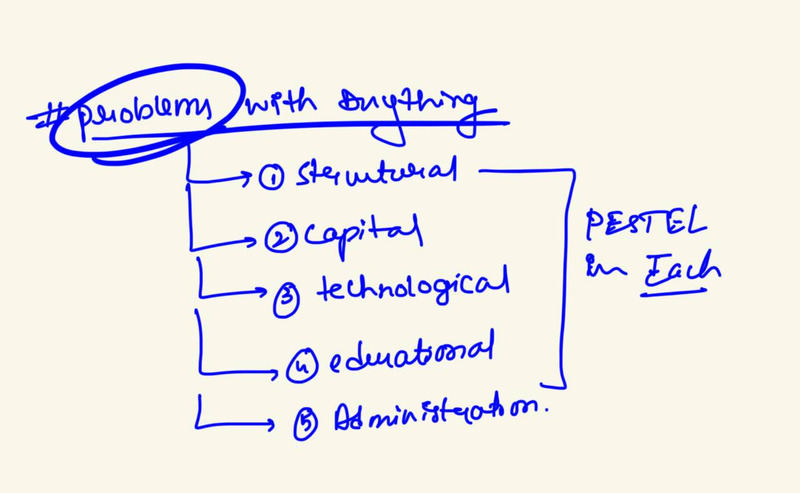 # problems with anything
① structural
② capital
③ technological
④ educational
⑤ Administration.
PESTEL
in Each